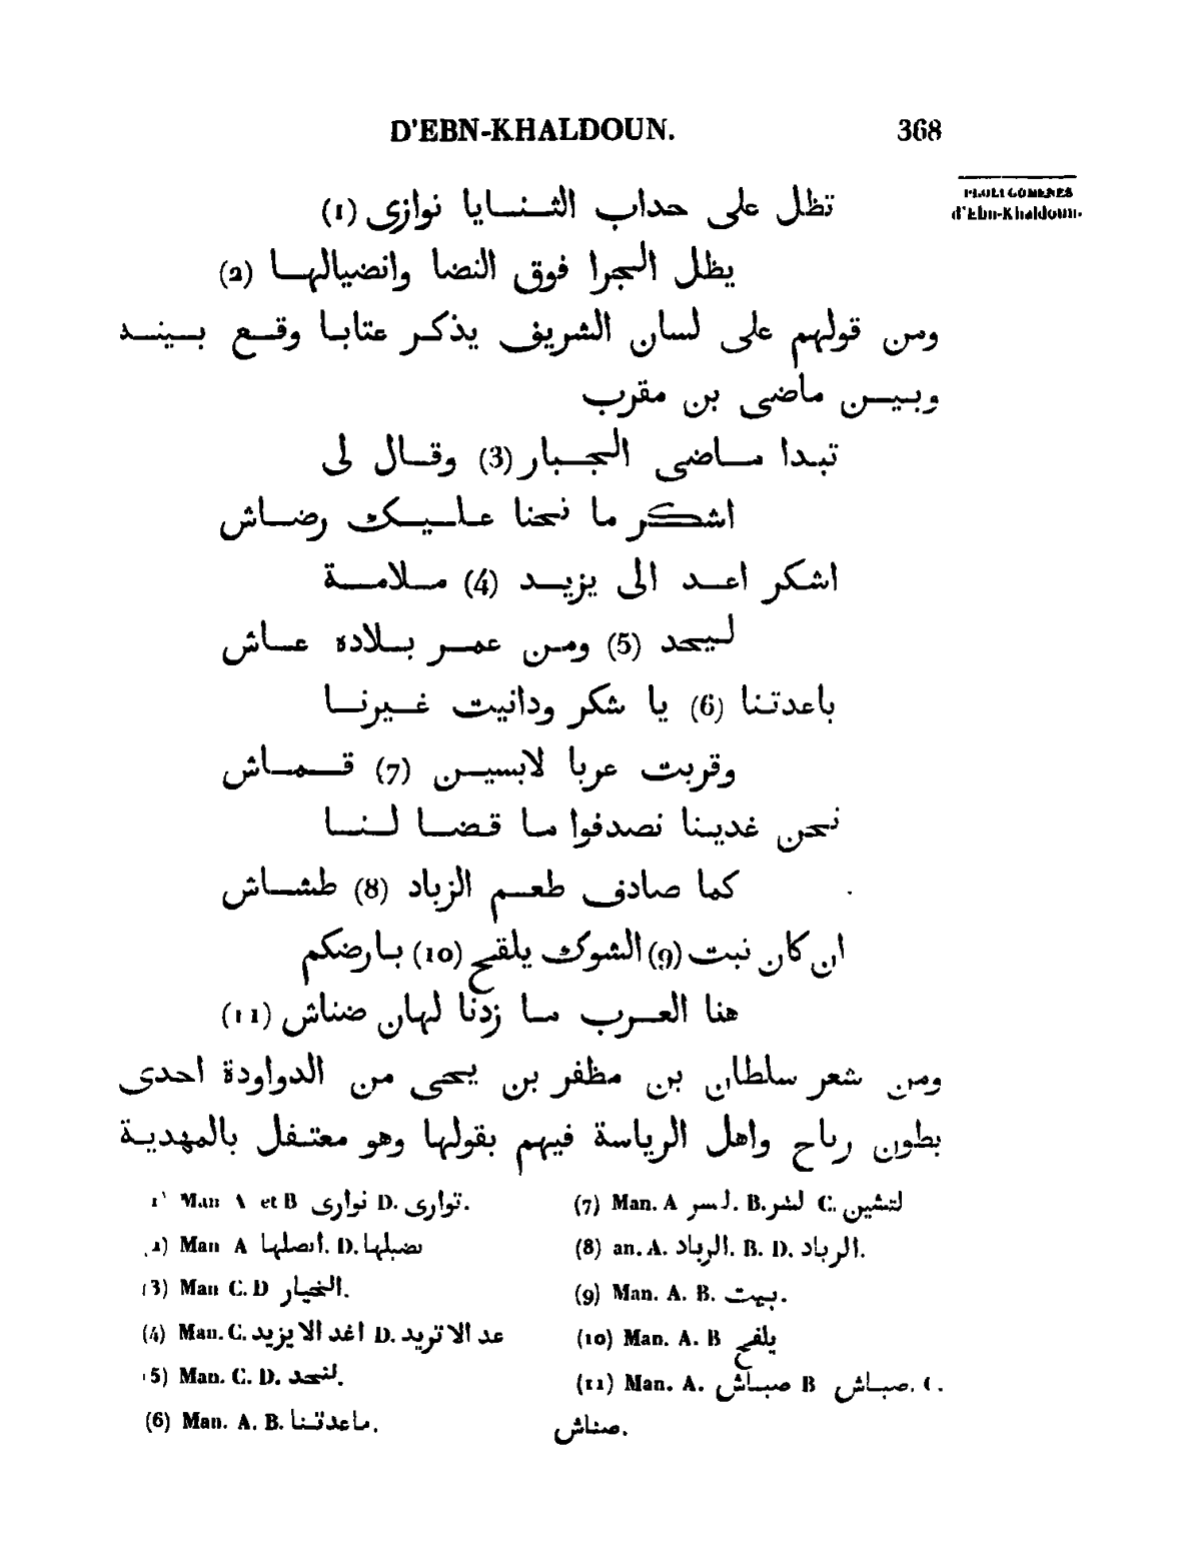 D'EBN-KHALDOUN. 368
PROLÉGOMÈNES
d'Ebn-Khaldoun.
تظل على حداب الثنايا نوازى (1)
يظل الجرا فوق النضا وانضيالها (2)
ومن قولهم على لسان الشريف يذكر عتابا وقع بينه
وبين ماضى بن مقرب
تبدا ماضى الجبار (3) وقال لى
اشكر ما نحنا عليك رضاش
اشكر اعد الى يزيد (4) ملامة
ليحد (5) ومن عمر بلاده عاش
باعدتنا (6) يا شكر ودانيت غيرنا
وقربت عربا لابسين (7) قماش
نحن غدينا نصدفوا ما قضا لنا
كما صادف طعم الزباد (8) طشاش
ان كان نبت (9) الشوك يلقح (10) بارضكم
هنا العرب ما زدنا لهان ضناش (11)
ومن شعر سلطان بن مظفر بن يحى من الدواودة احدى
بطون رباح واهل الرياسة فيهم بقولها وهو معتقل بالمهدية
1) Man A et B نوارى D. توارى.
2) Man A اصلها. D. نضبلها
(3) Man C. D الخيار.
(4) Man. C. اغد الا يزيد D. عد الا تريد
(5) Man. C. D. لنحد.
(6) Man. A. B. ماعدتنا.
(7) Man. A لسر. B. لشر C. لتشين
(8) an. A. الرباد. B. D. الرباد.
(9) Man. A. B. بيت.
(10) Man. A. B يلفح
(11) Man. A. صباش B صباش. C.
صناش.